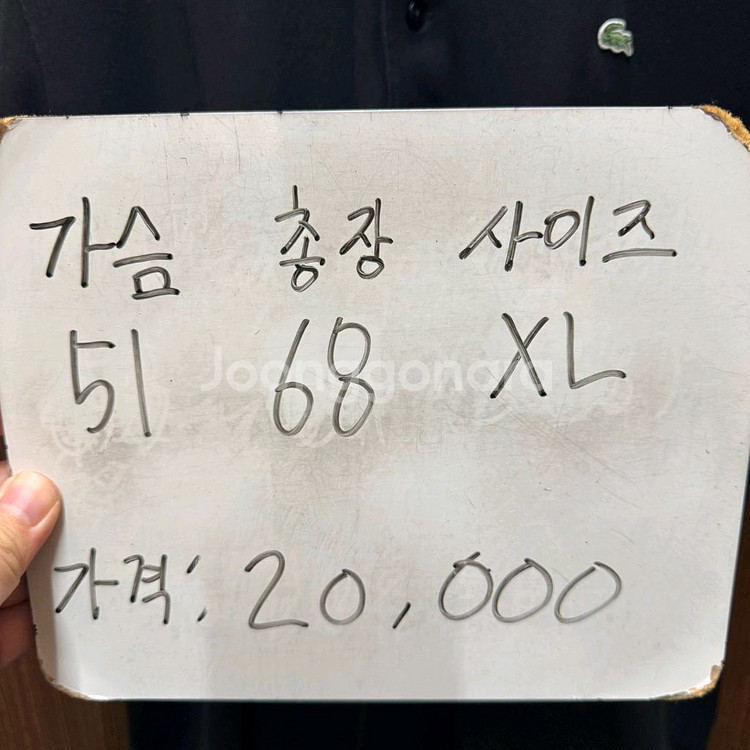 가슴 총장 사이즈
51 68 XL
Joonggonara
가격: 20,000